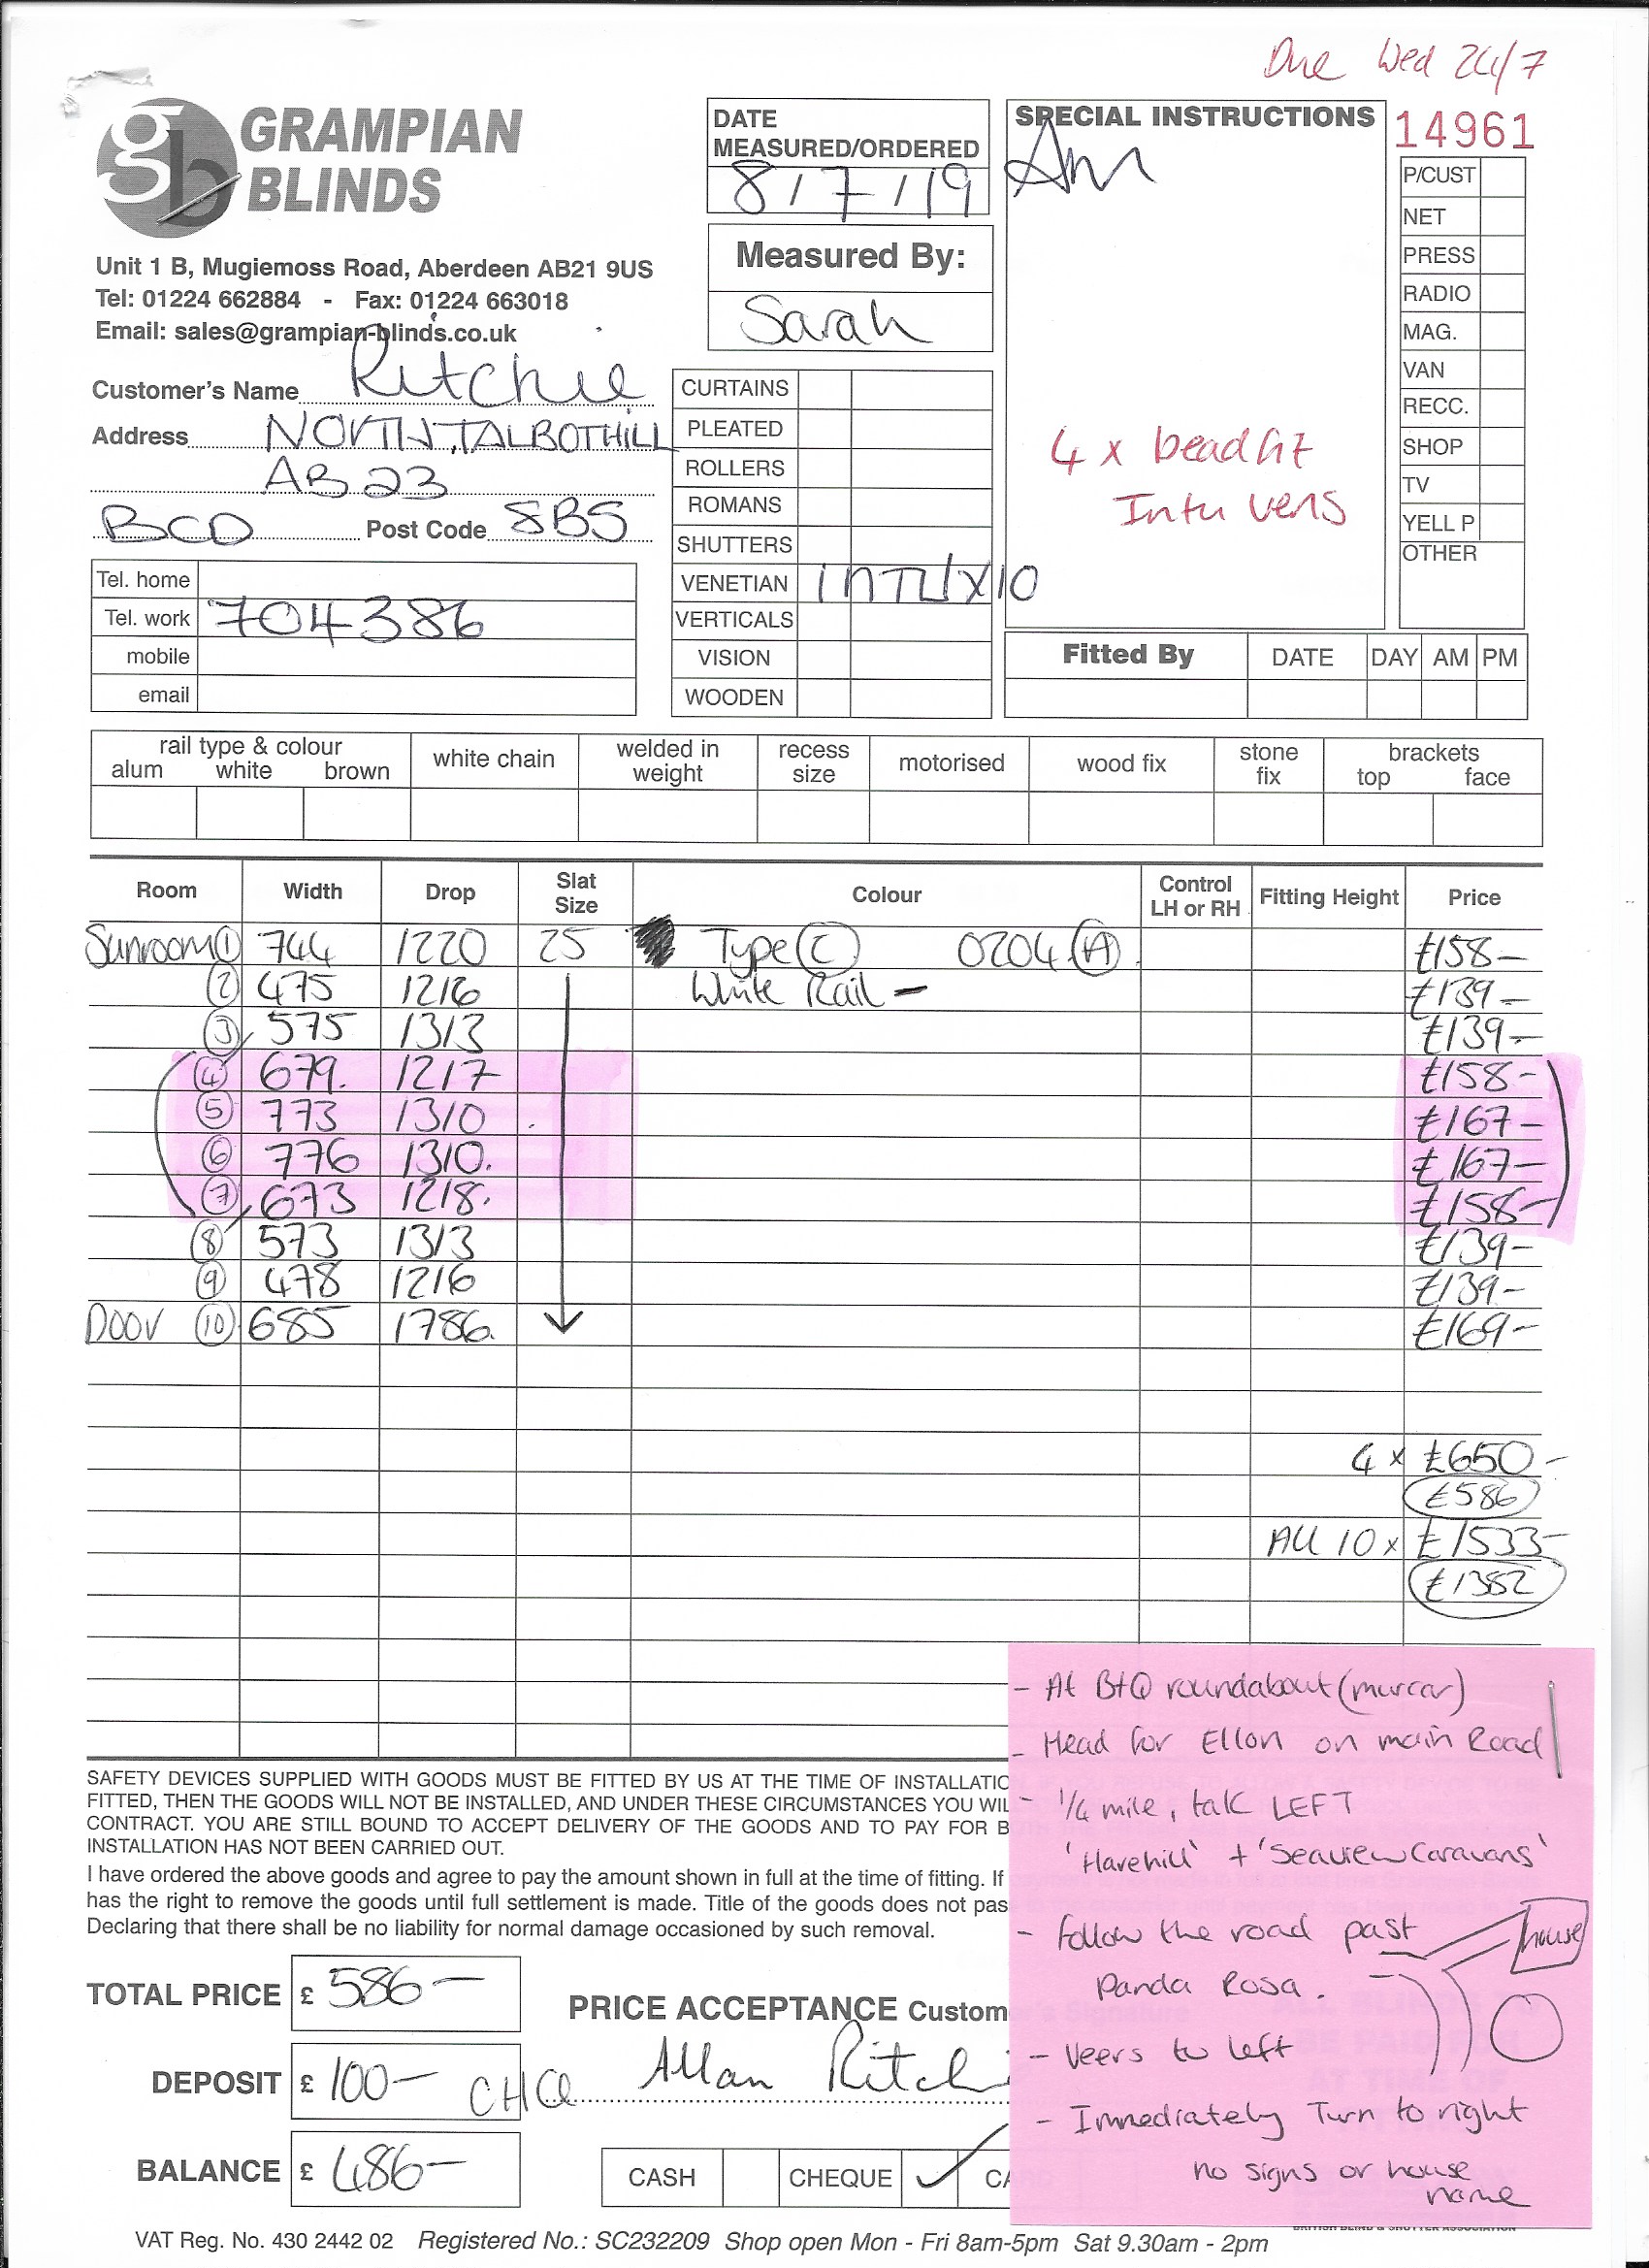 Due Wed 24/7
gb GRAMPIAN
BLINDS
Unit 1 B, Mugiemoss Road, Aberdeen AB21 9US
Tel: 01224 662884 - Fax: 01224 663018
Email: sales@grampian-blinds.co.uk
DATE
MEASURED/ORDERED
8/7/19
Measured By:
Sarah
SPECIAL INSTRUCTIONS
Am
4 x beadfit
Intu vens
14961
P/CUST
NET
PRESS
RADIO
MAG.
VAN
RECC.
SHOP
TV
YELL P
OTHER
Customer's Name Ritchie
Address NORTH TALBOTHILL
AB23
BCD Post Code 8BS
Tel. home
Tel. work 704386
mobile
email
CURTAINS
PLEATED
ROLLERS
ROMANS
SHUTTERS
VENETIAN INTU X10
VERTICALS
VISION
WOODEN
Fitted By DATE DAY AM PM
rail type & colour
alum white brown
white chain
welded in weight
recess size
motorised
wood fix
stone fix
brackets
top face
Room Width Drop Slat Size Colour Control LH or RH Fitting Height Price
Sunroom 1 744 1220 25 Type C 0204 A £158-
2 475 1216 White Rail - £139-
3 575 1313 £139-
4 679 1217 £158-
5 773 1310 £167-
6 776 1310 £167-
7 673 1218 £158-
8 573 1313 £139-
9 478 1216 £139-
Door 10 685 1786 £169-
4 x £650-
£586
All 10 x £1533-
£1382
- At B+Q roundabout (murcar)
- Head for Ellon on main Road
- 1/4 mile, take LEFT
'Harehill' + 'Seaview Caravans'
- Follow the road past
Panda Rosa.
house
- Veers to left
- Immediately Turn to right
no signs or house
name
SAFETY DEVICES SUPPLIED WITH GOODS MUST BE FITTED BY US AT THE TIME OF INSTALLATIO
FITTED, THEN THE GOODS WILL NOT BE INSTALLED, AND UNDER THESE CIRCUMSTANCES YOU WIL
CONTRACT. YOU ARE STILL BOUND TO ACCEPT DELIVERY OF THE GOODS AND TO PAY FOR B
INSTALLATION HAS NOT BEEN CARRIED OUT.
I have ordered the above goods and agree to pay the amount shown in full at the time of fitting. If
has the right to remove the goods until full settlement is made. Title of the goods does not pas
Declaring that there shall be no liability for normal damage occasioned by such removal.
TOTAL PRICE £ 586-
PRICE ACCEPTANCE Custom
DEPOSIT £ 100- CHQ
Allan Ritchi
BALANCE £ 486-
CASH CHEQUE ✓ CA
VAT Reg. No. 430 2442 02 Registered No.: SC232209 Shop open Mon - Fri 8am-5pm Sat 9.30am - 2pm